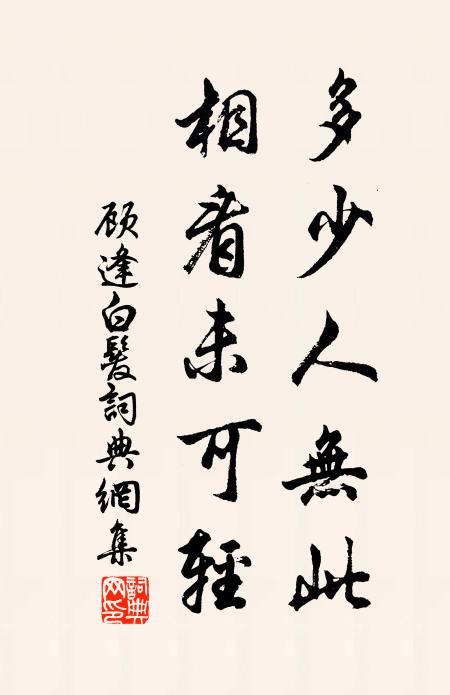 多少人無此
相看未可輕
顾逢白髮詞典網集
詞典網印